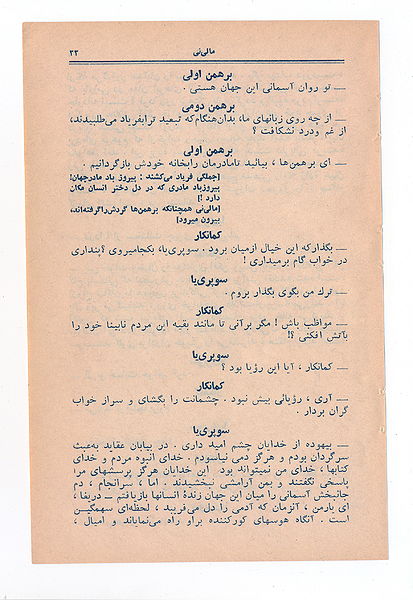 مالی‌نی ۲۳
برهمن اولی
— تو روان آسمانی این جهان هستی .
برهمن دومی
— از چه روی زبانهای ما، بدان‌هنگام‌که تبعید ترا بفریاد می‌طلبیدند،
از غم ودرد نشکافت ؟
برهمن اولی
— ای برهمن‌ها ، بیائید تامادرمان رابخانه خودش بازگردانیم .
[جملگی فریاد می‌کشند : پیروز باد مادرجهان!
پیروزباد مادری که در دل دختر انسان مکان
دارد !]
[مالی‌نی همچنانکه برهمن‌ها گردش‌راگرفته‌اند،
بیرون میرود]
کمانکار
— بگذارکه این خیال ازمیان برود . سوپری‌یا، بکجامیروی ؟پنداری
در خواب گام برمیداری !
سوپری‌یا
— ترك من بگوی بگذار بروم .
کمانکار
— مواظب باش ! مگر برآنی تا مانند بقیه این مردم نابینا خود را
بآتش افکنی ؟!
سوپری‌یا
— کمانکار ، آیا این رؤیا بود ؟
کمانکار
— آری ، رؤیائی بیش نبود . چشمانت را بگشای و سراز خواب
گران بردار .
سوپری‌یا
— بیهوده از خدایان چشم امید داری . در بیابان عقاید به‌عبث
سرگردان بودم و هرگز دمی نیاسودم . خدای انبوه مردم و خدای
کتابها ، خدای من نمیتواند بود این خدایان هرگز پرسشهای مرا
پاسخی نگفتند و بمن آرامشی نبخشیدند . اما ، سرانجام ، دم
جانبخش آسمانی را میان این جهان زندهٔ انسانها بازیافتم — دریغا ،
ای یارمن ، آنزمان که آدمی را دل می‌فریبد ، لحظه‌ای سهمگین
است . آنگاه هوسهای کورکننده براو راه می‌نمایاند و امیال ،